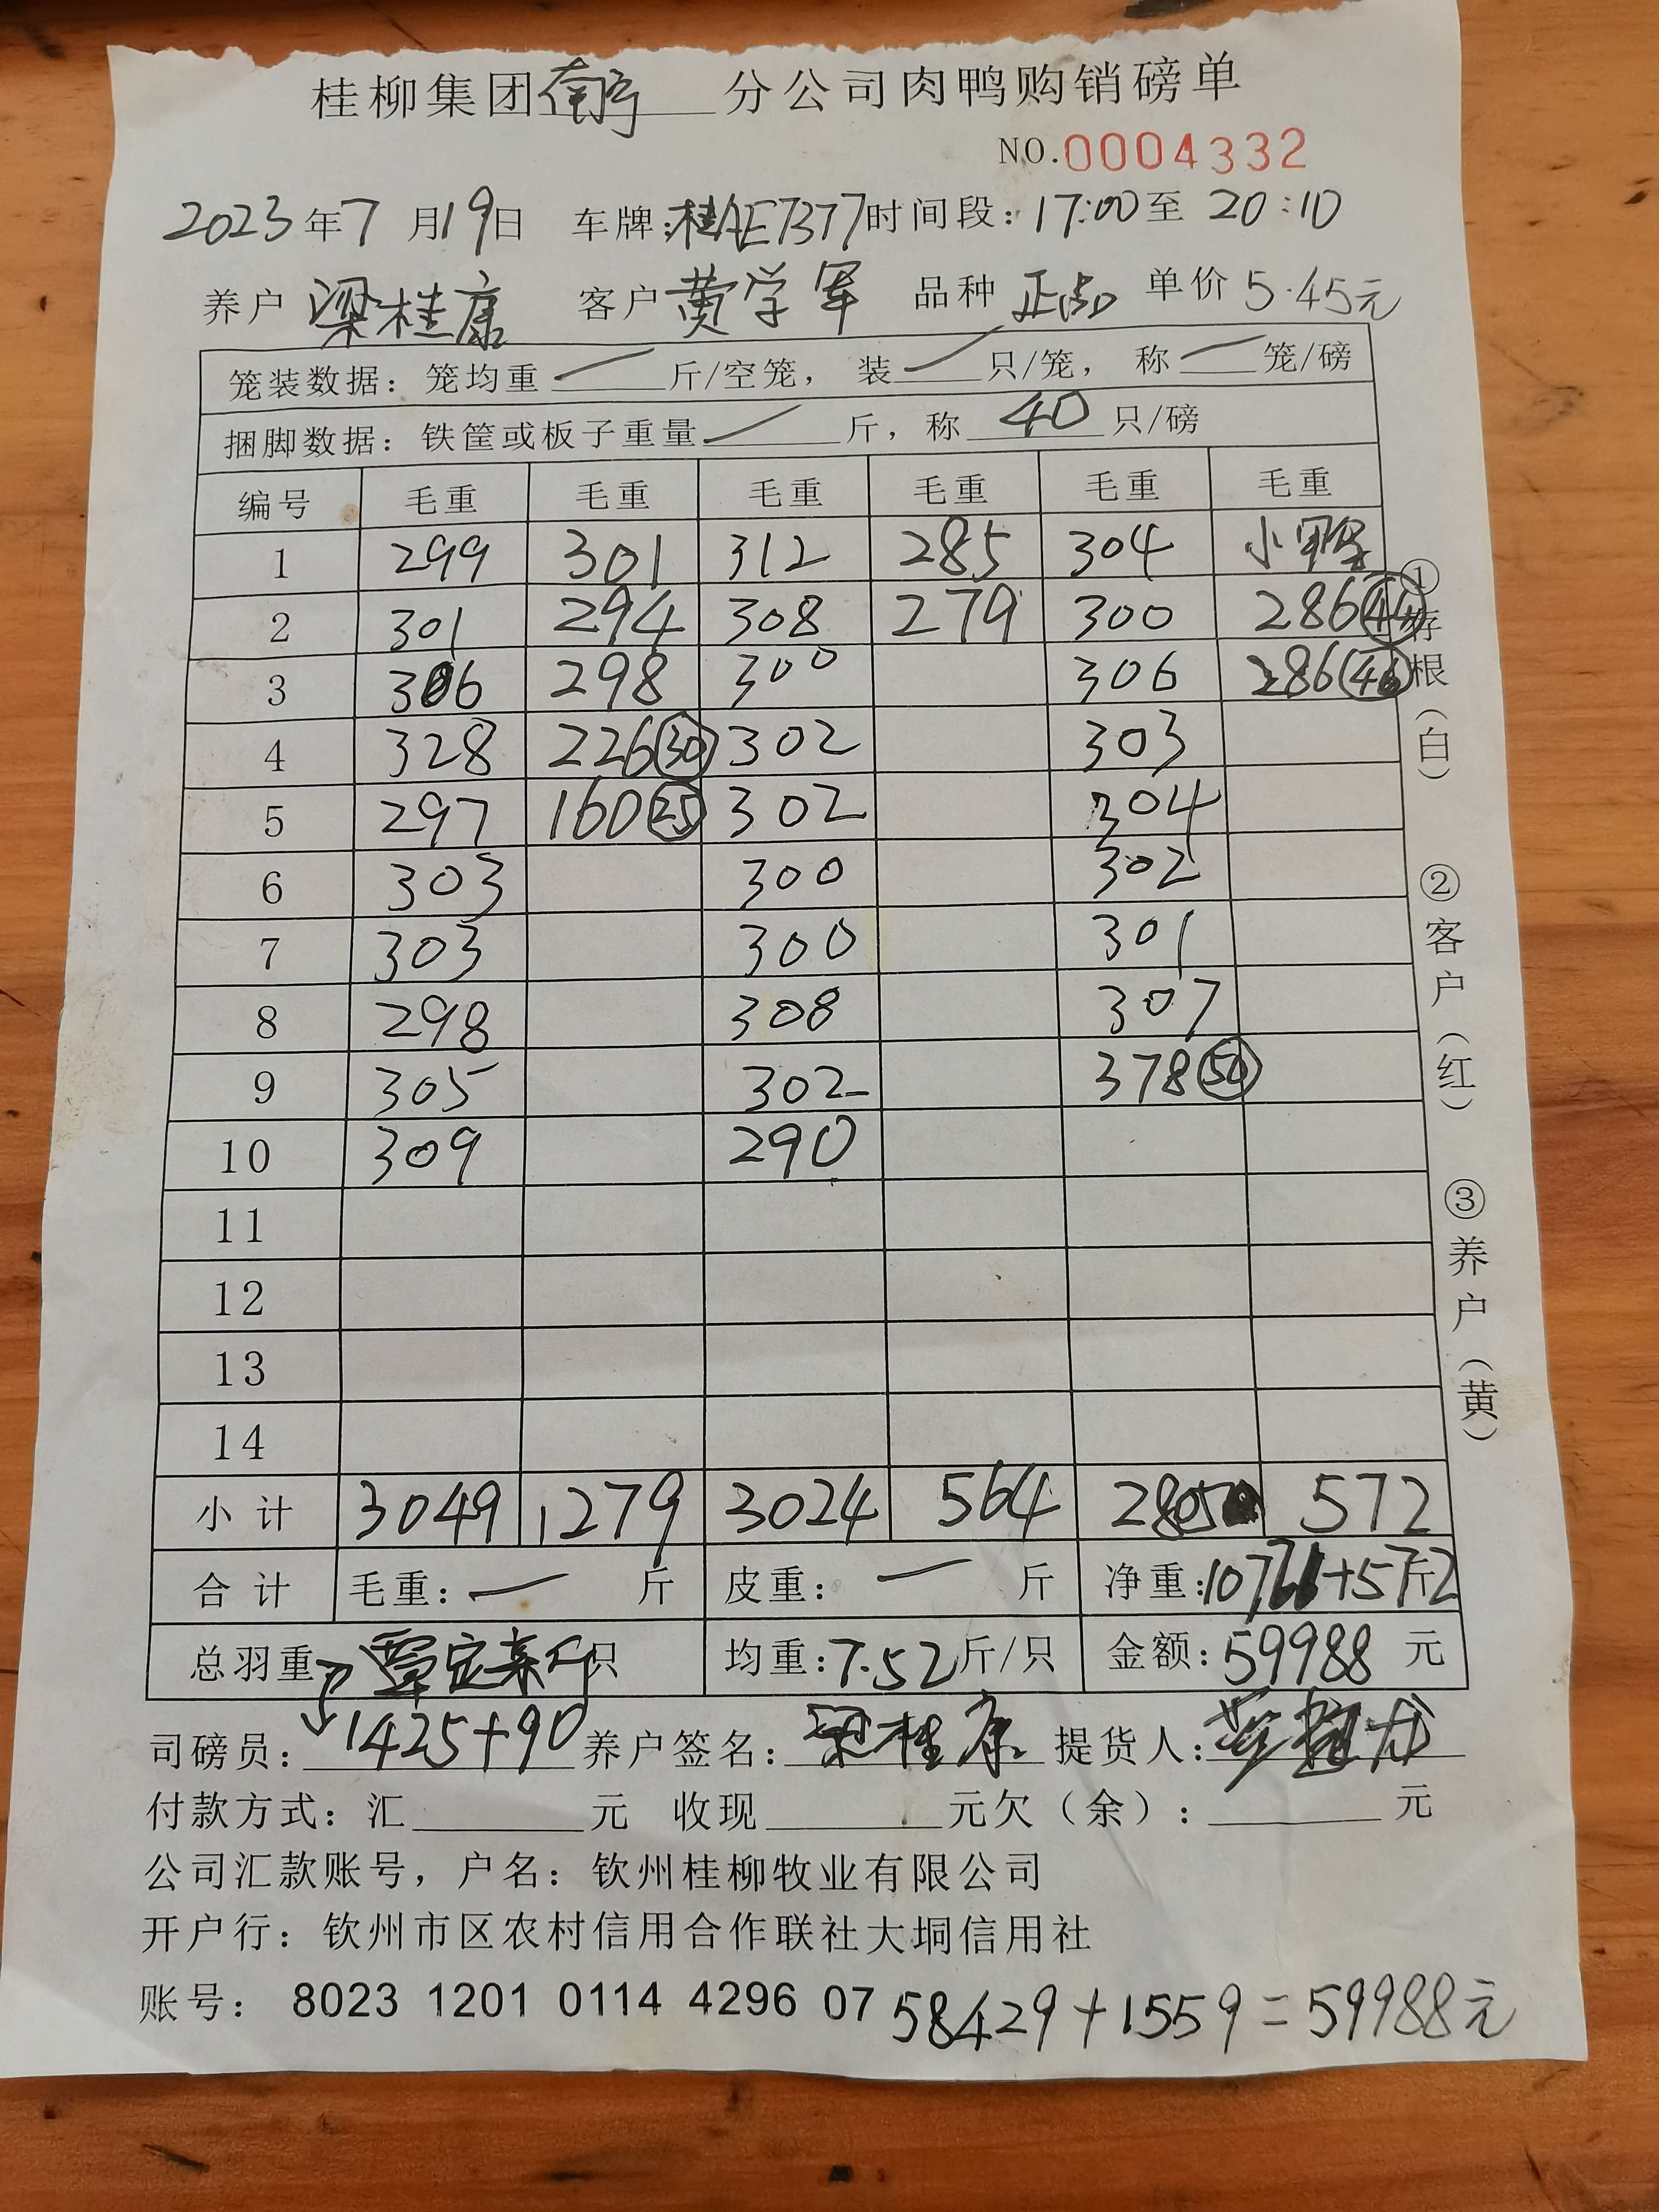 桂柳集团南宁分公司肉鸭购销磅单
NO.0004332
2023年7月19日 车牌:桂AE7377 时间段:17:00至20:10
养户 梁桂康 客户 黄学军 品种 单价 5.45元
笼装数据:笼均重 一 斤/空笼,装 一 只/笼,称 一 笼/磅
捆脚数据:铁筐或板子重量 一 斤,称 40 只/磅
编号 毛重 毛重 毛重 毛重 毛重 毛重
1 299 301 312 285 304 小
2 301 294 308 279 300 286(44)
3 306 298 300 306 286(46)
4 328 226(30) 302 303
5 297 160(25) 302 304
6 303 300 302
7 303 300 301
8 298 308 307
9 305 302 378(50)
10 309 290
11
12
13
14
小计 3049 1279 3024 564 2805 572
合计 毛重:一 斤 皮重:一 斤 净重:10721+572斤
总羽重 覃定 只 均重:7.52斤/只 金额:59988元
司磅员:1425+90 养户签名:梁桂康 提货人:
付款方式:汇 元 收现 元欠(余): 元
公司汇款账号,户名:钦州桂柳牧业有限公司
开户行:钦州市区农村信用合作联社大垌信用社
账号: 8023 1201 0114 4296 07 58429+1559=59988元
①存根(白) ②客户(红) ③养户(黄)